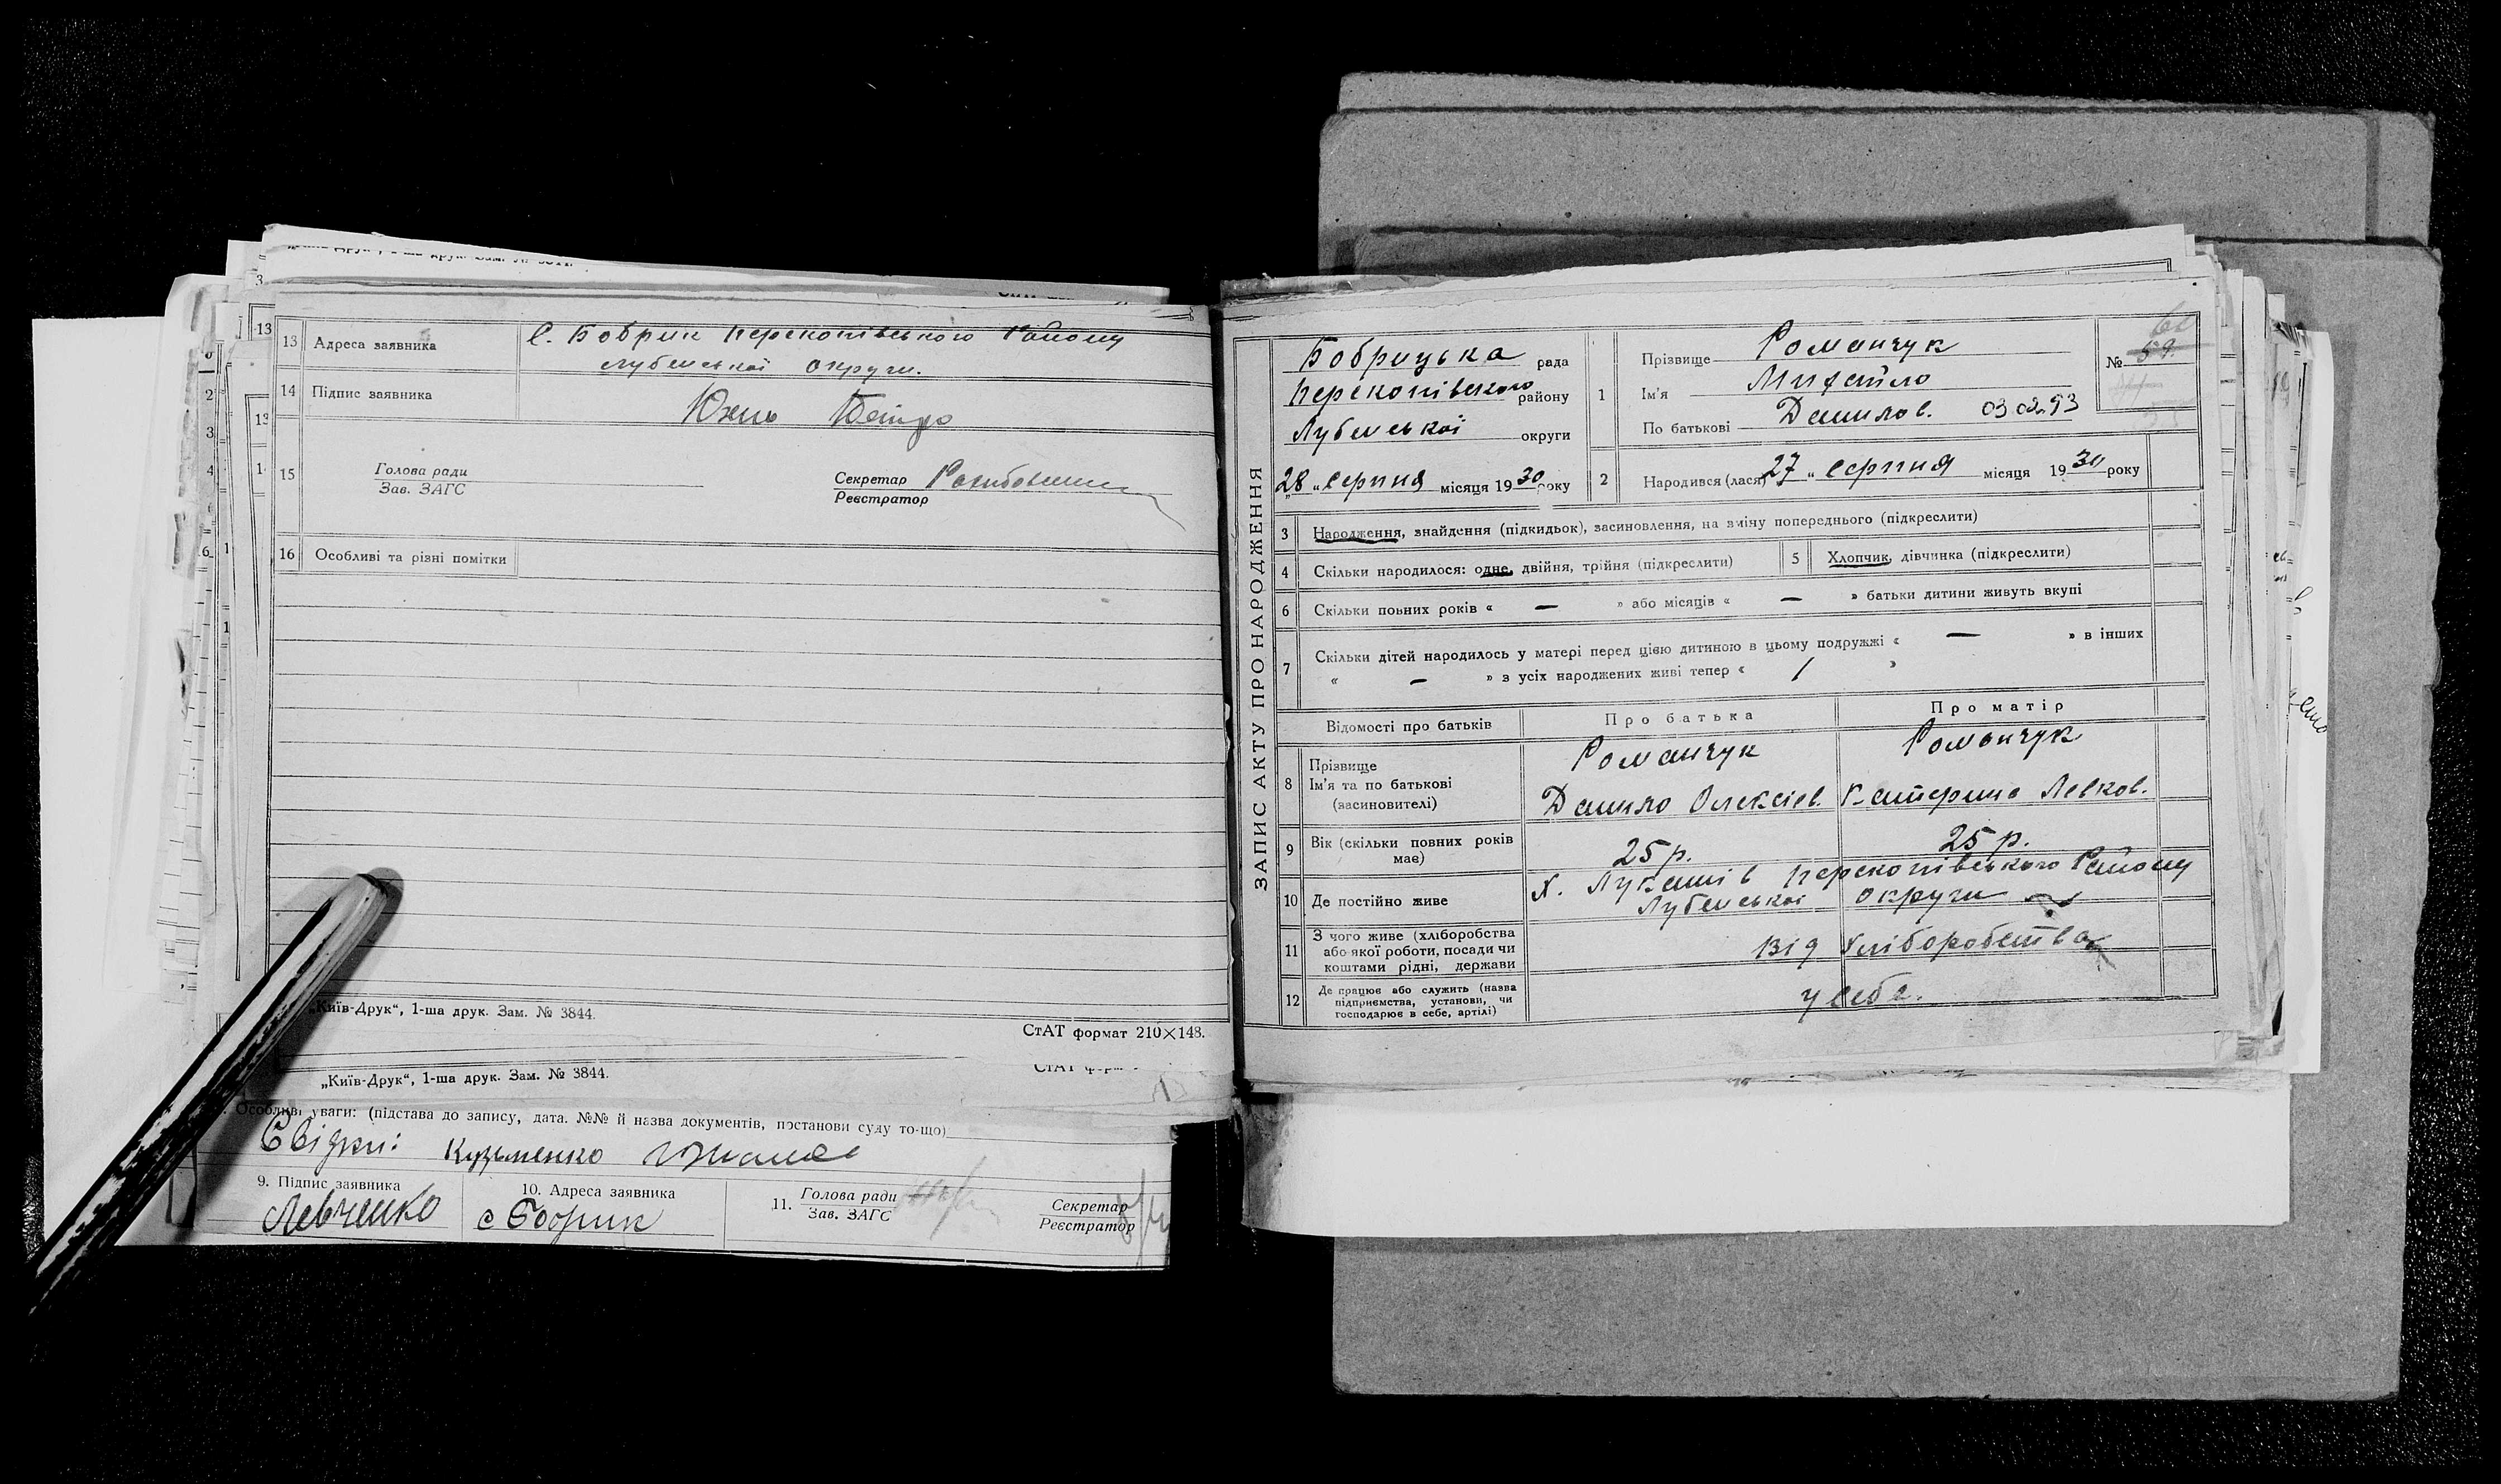 13 Адреса заявника С. Бобрик Перекопівського Району
Лубенської округи.
14 Підпис заявника
15 Голова ради
Зав. ЗАГС
Секретар
Реєстратор
16 Особливі та різні помітки
„Київ-Друк“, 1-ша друк. Зам. № 3844.
СтАТ формат 210×148.
„Київ-Друк“, 1-ша друк. Зам. № 3844.
Особливі уваги: (підстава до запису, дата. №№ й назва документів, постанови суду то-що)
Свідки: Кузьменко
9. Підпис заявника
Левченко
10. Адреса заявника
с Бобрик
11. Голова ради
Зав. ЗАГС
Секретар
Реєстратор
ЗАПИС АКТУ ПРО НАРОДЖЕННЯ
Бобрицька рада
Перекопівського району
Лубенської округи
„28„ Серпня місяця 1930 року
1 Прізвище Романчук
Ім'я Михайло
По батькові Данилов. 03 02.93
№ 59.
2 Народився (лася) 27 „ Серпня місяця 1930 року
3 Народження, знайдення (підкидьок), засиновлення, на зміну попереднього (підкреслити)
4 Скільки народилося: одне, двійня, трійня (підкреслити)
5 Хлопчик, дівчинка (підкреслити)
6 Скільки повних років « — » або місяців « — » батьки дитини живуть вкупі
7 Скільки дітей народилось у матері перед цією дитиною в цьому подружжі « — » в інших
« — » з усіх народжених живі тепер « 1 »
Відомості про батьків Про батька Про матір
8 Прізвище Романчук Романчук
Ім'я та по батькові Данило Олексієв. Катерина Левков.
(засиновителі)
9 Вік (скільки повних років має) 25 р. 25 р.
10 Де постійно живе Х. Лукашів Перекопівського Району
Лубенської округи
11 З чого живе (хліборобства
або якої роботи, посади чи
коштами рідні, держави
Від хліборобства
12 Де працює або служить (назва
підприємства, установи, чи
господарює в себе, артілі)
у себе.